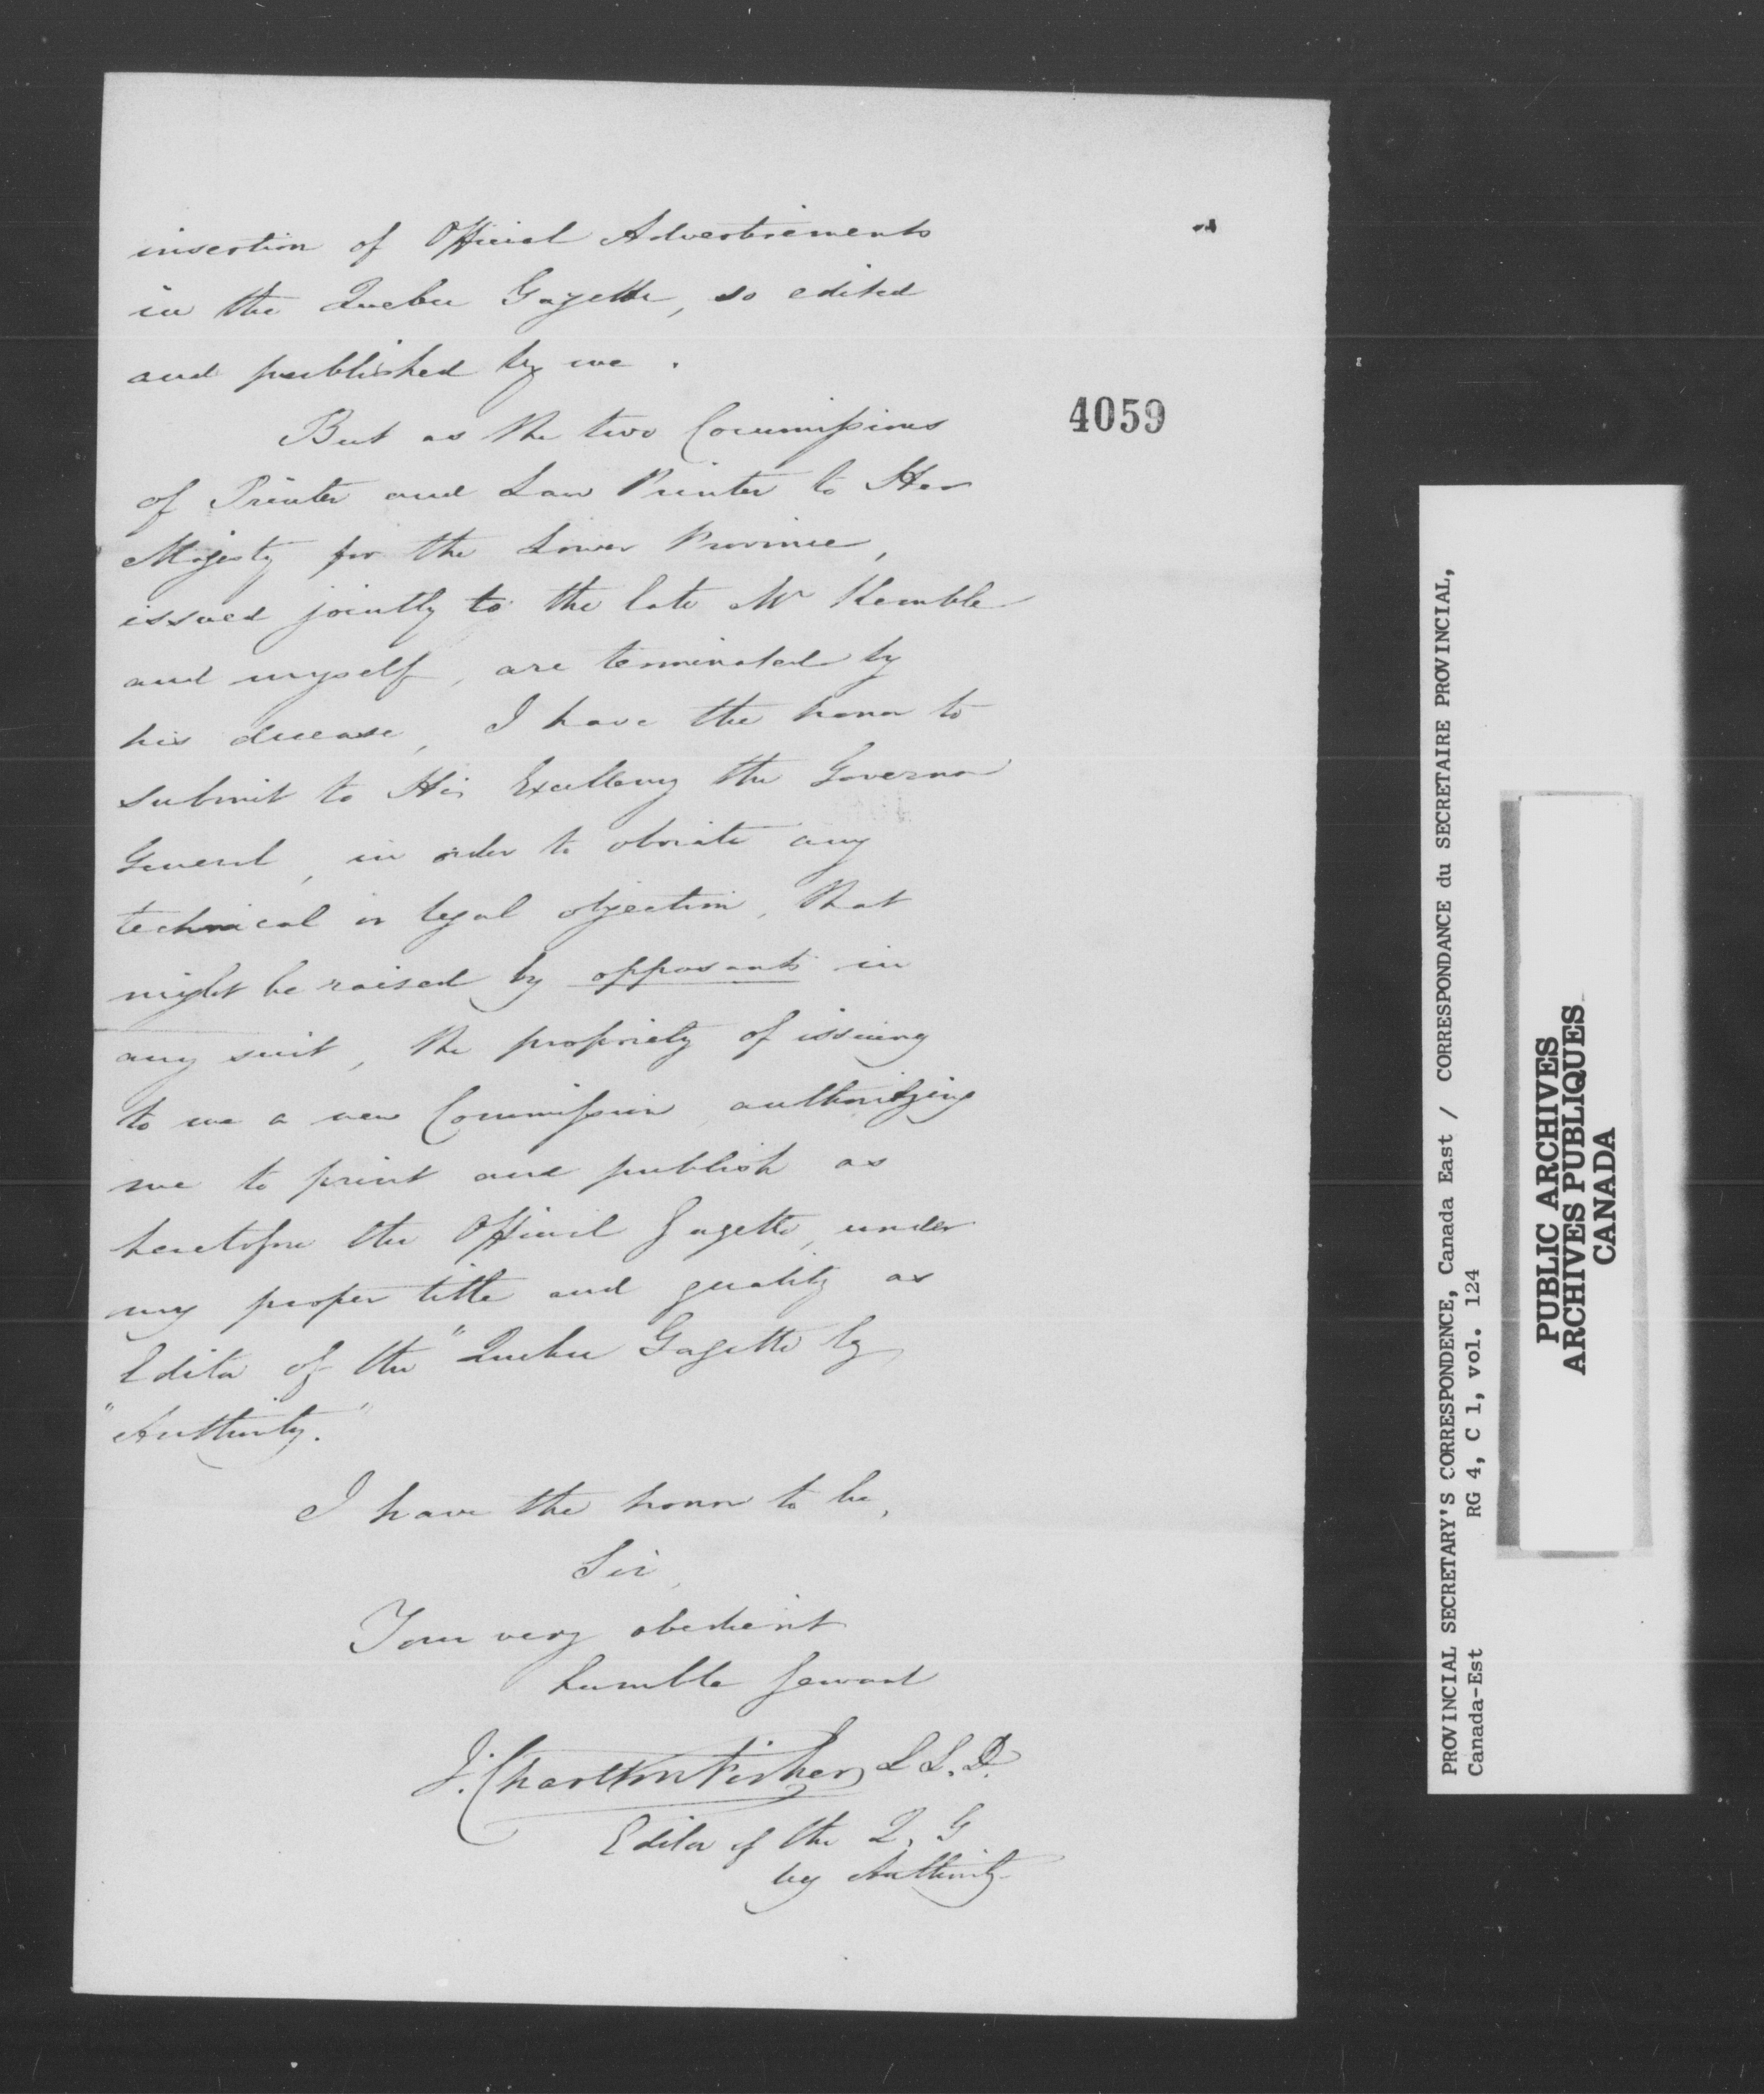 insertion of Official Advertisements
in the Quebec Gazette, so edited
and published by me.
4059
But as the two Commissions
of Printer and Law Printer to Her
Majesty for the Lower Province,
issued jointly to the late Mr Kemble
and myself, are terminated by
his decease, I have the honor to
submit to His Excellency the Governor
General, in order to obviate any
technical or legal objection, that
might be raised by opposants in
any suit, the propriety of issuing
to me a new Commission authorizing
me to print and publish as
heretofore the Official Gazette, under
my proper title and quality as
Editor of the "Quebec Gazette by
"Authority."
I have the honor to be,
Sir,
Your very obedient
humble Servant
J. Charlton Fisher L L. D.
Editor of the Q. G
by Authority
PROVINCIAL SECRETARY'S CORRESPONDENCE, Canada East / CORRESPONDANCE du SECRETAIRE PROVINCIAL,
Canada-Est RG 4, C 1, vol. 124
PUBLIC ARCHIVES
ARCHIVES PUBLIQUES
CANADA